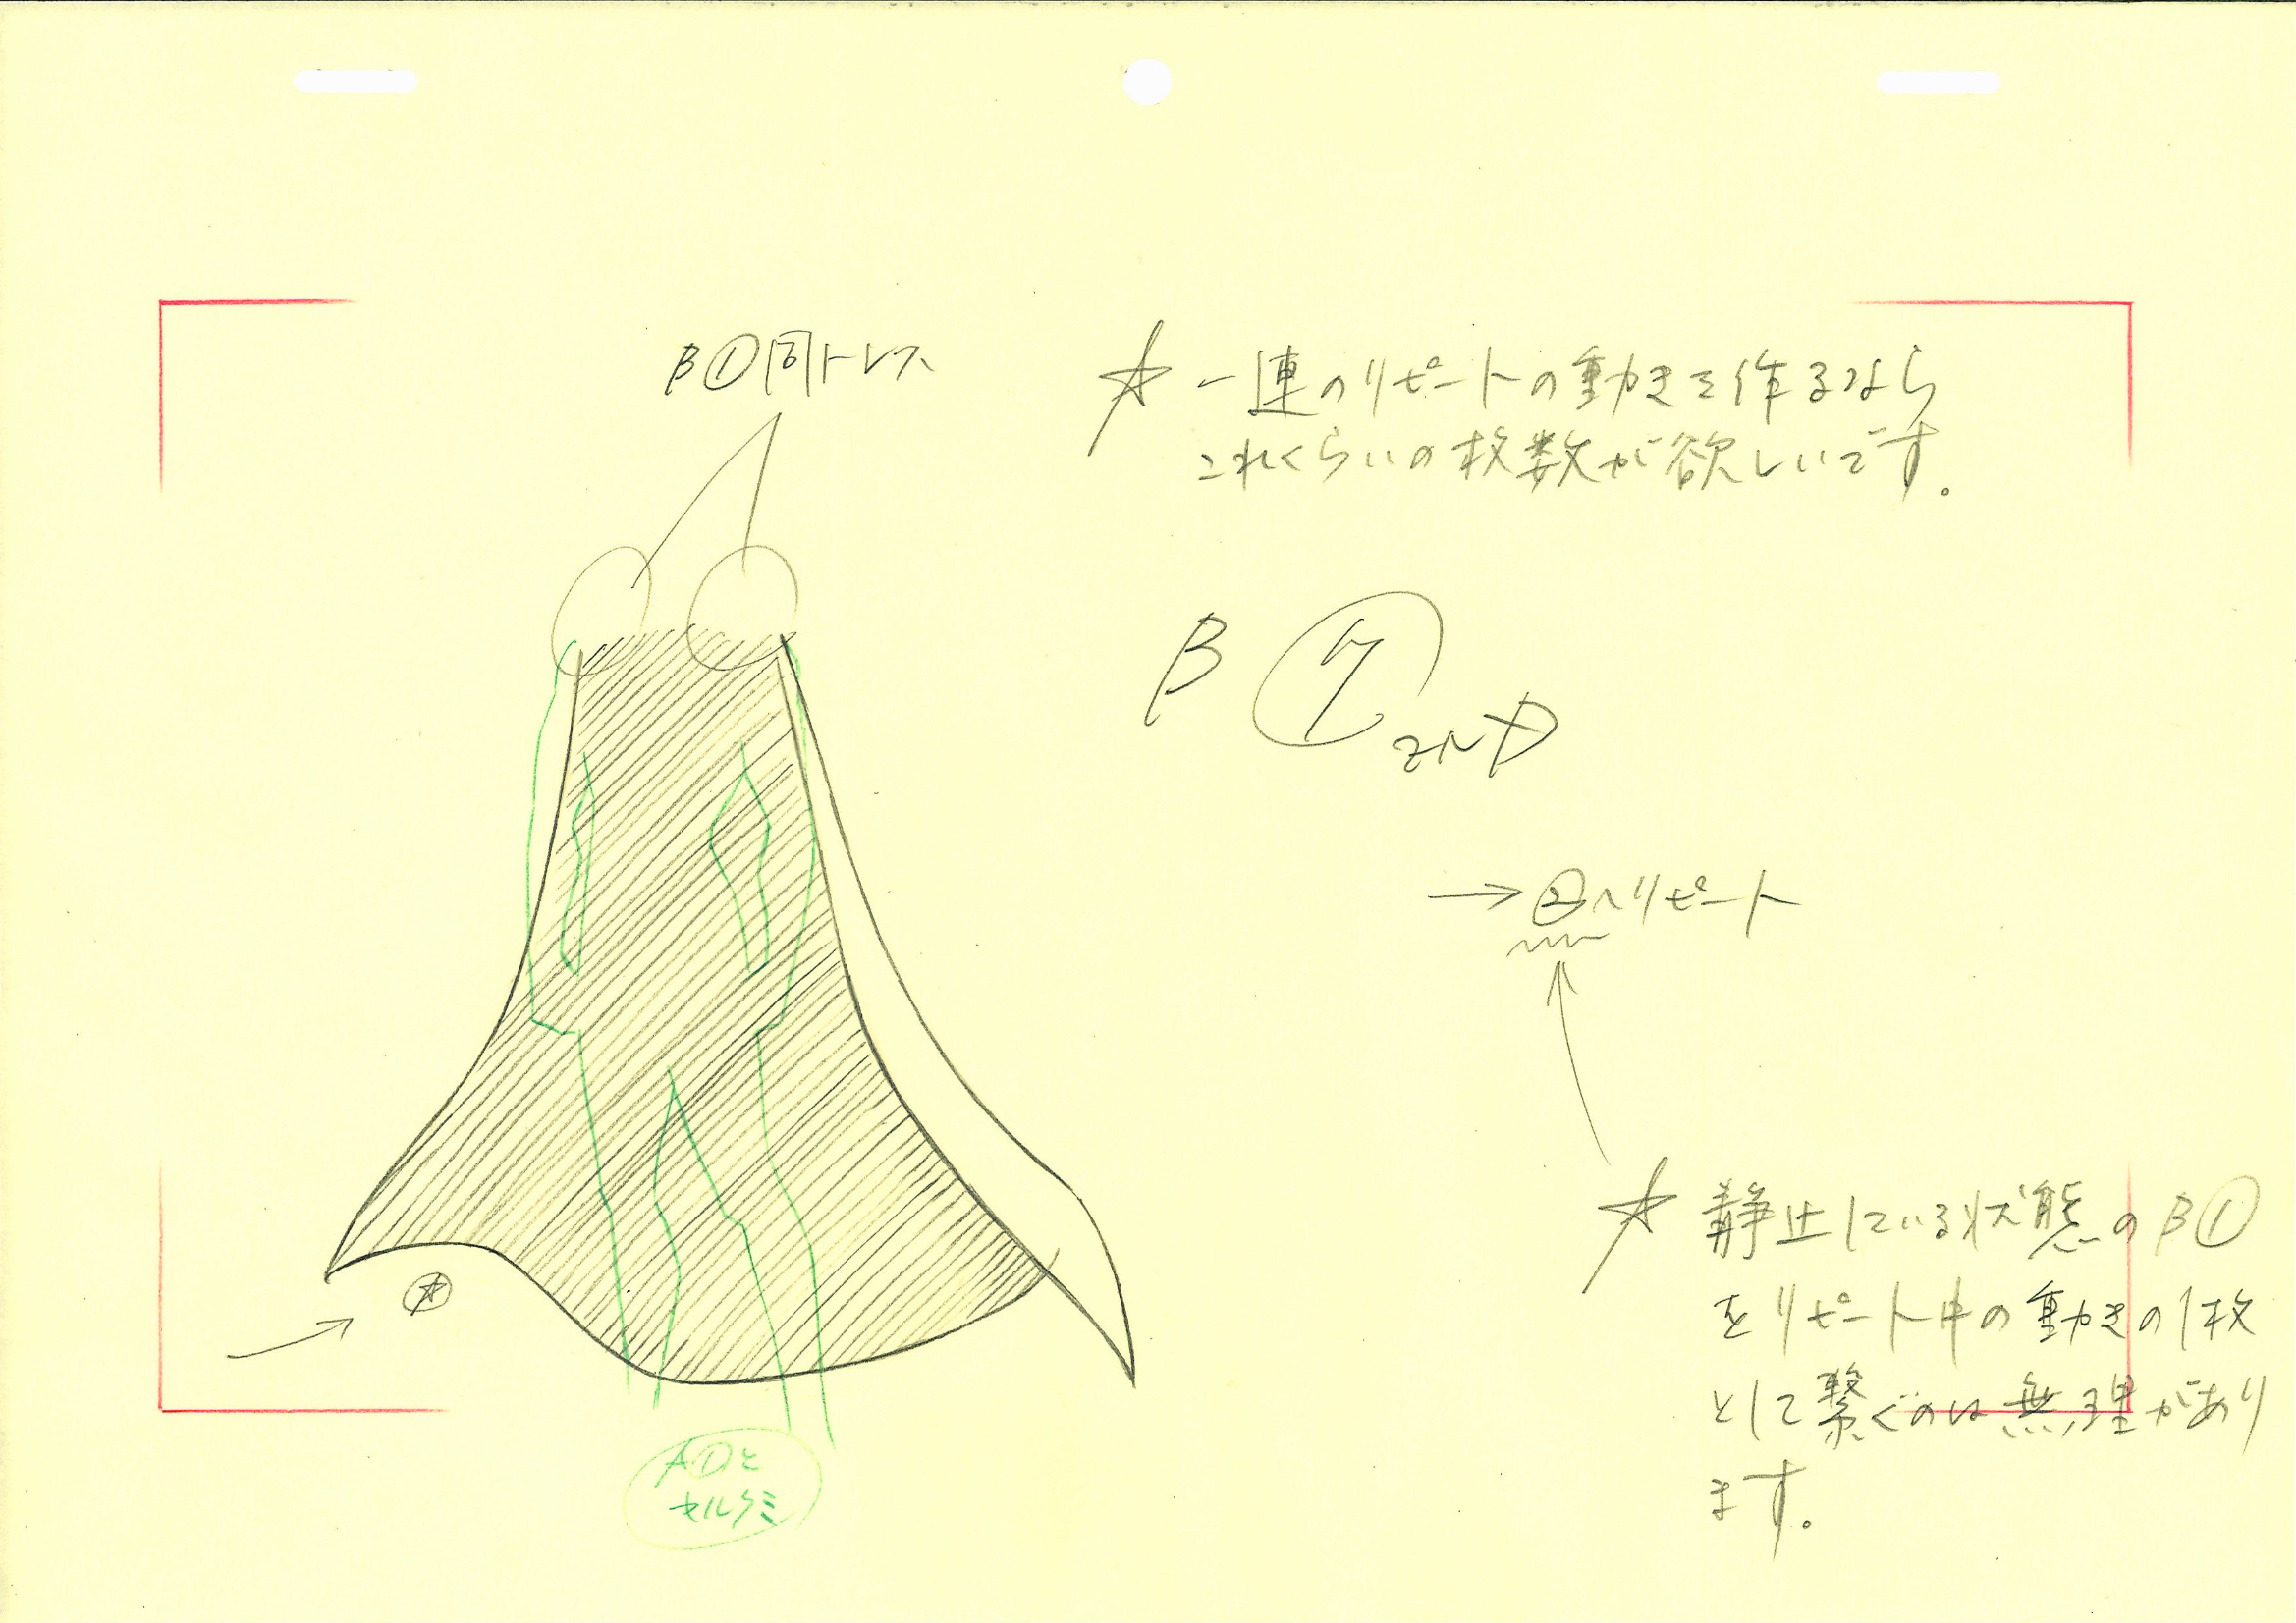 B①同トレス
☆一連のリピートの動きを作るなら
これくらいの枚数が欲しいです。
B⑦
→②へリピート
☆静止している状態のB①
をリピート中の動きの1枚
として繋ぐのは無理があり
ます。
A①と
セルクミ